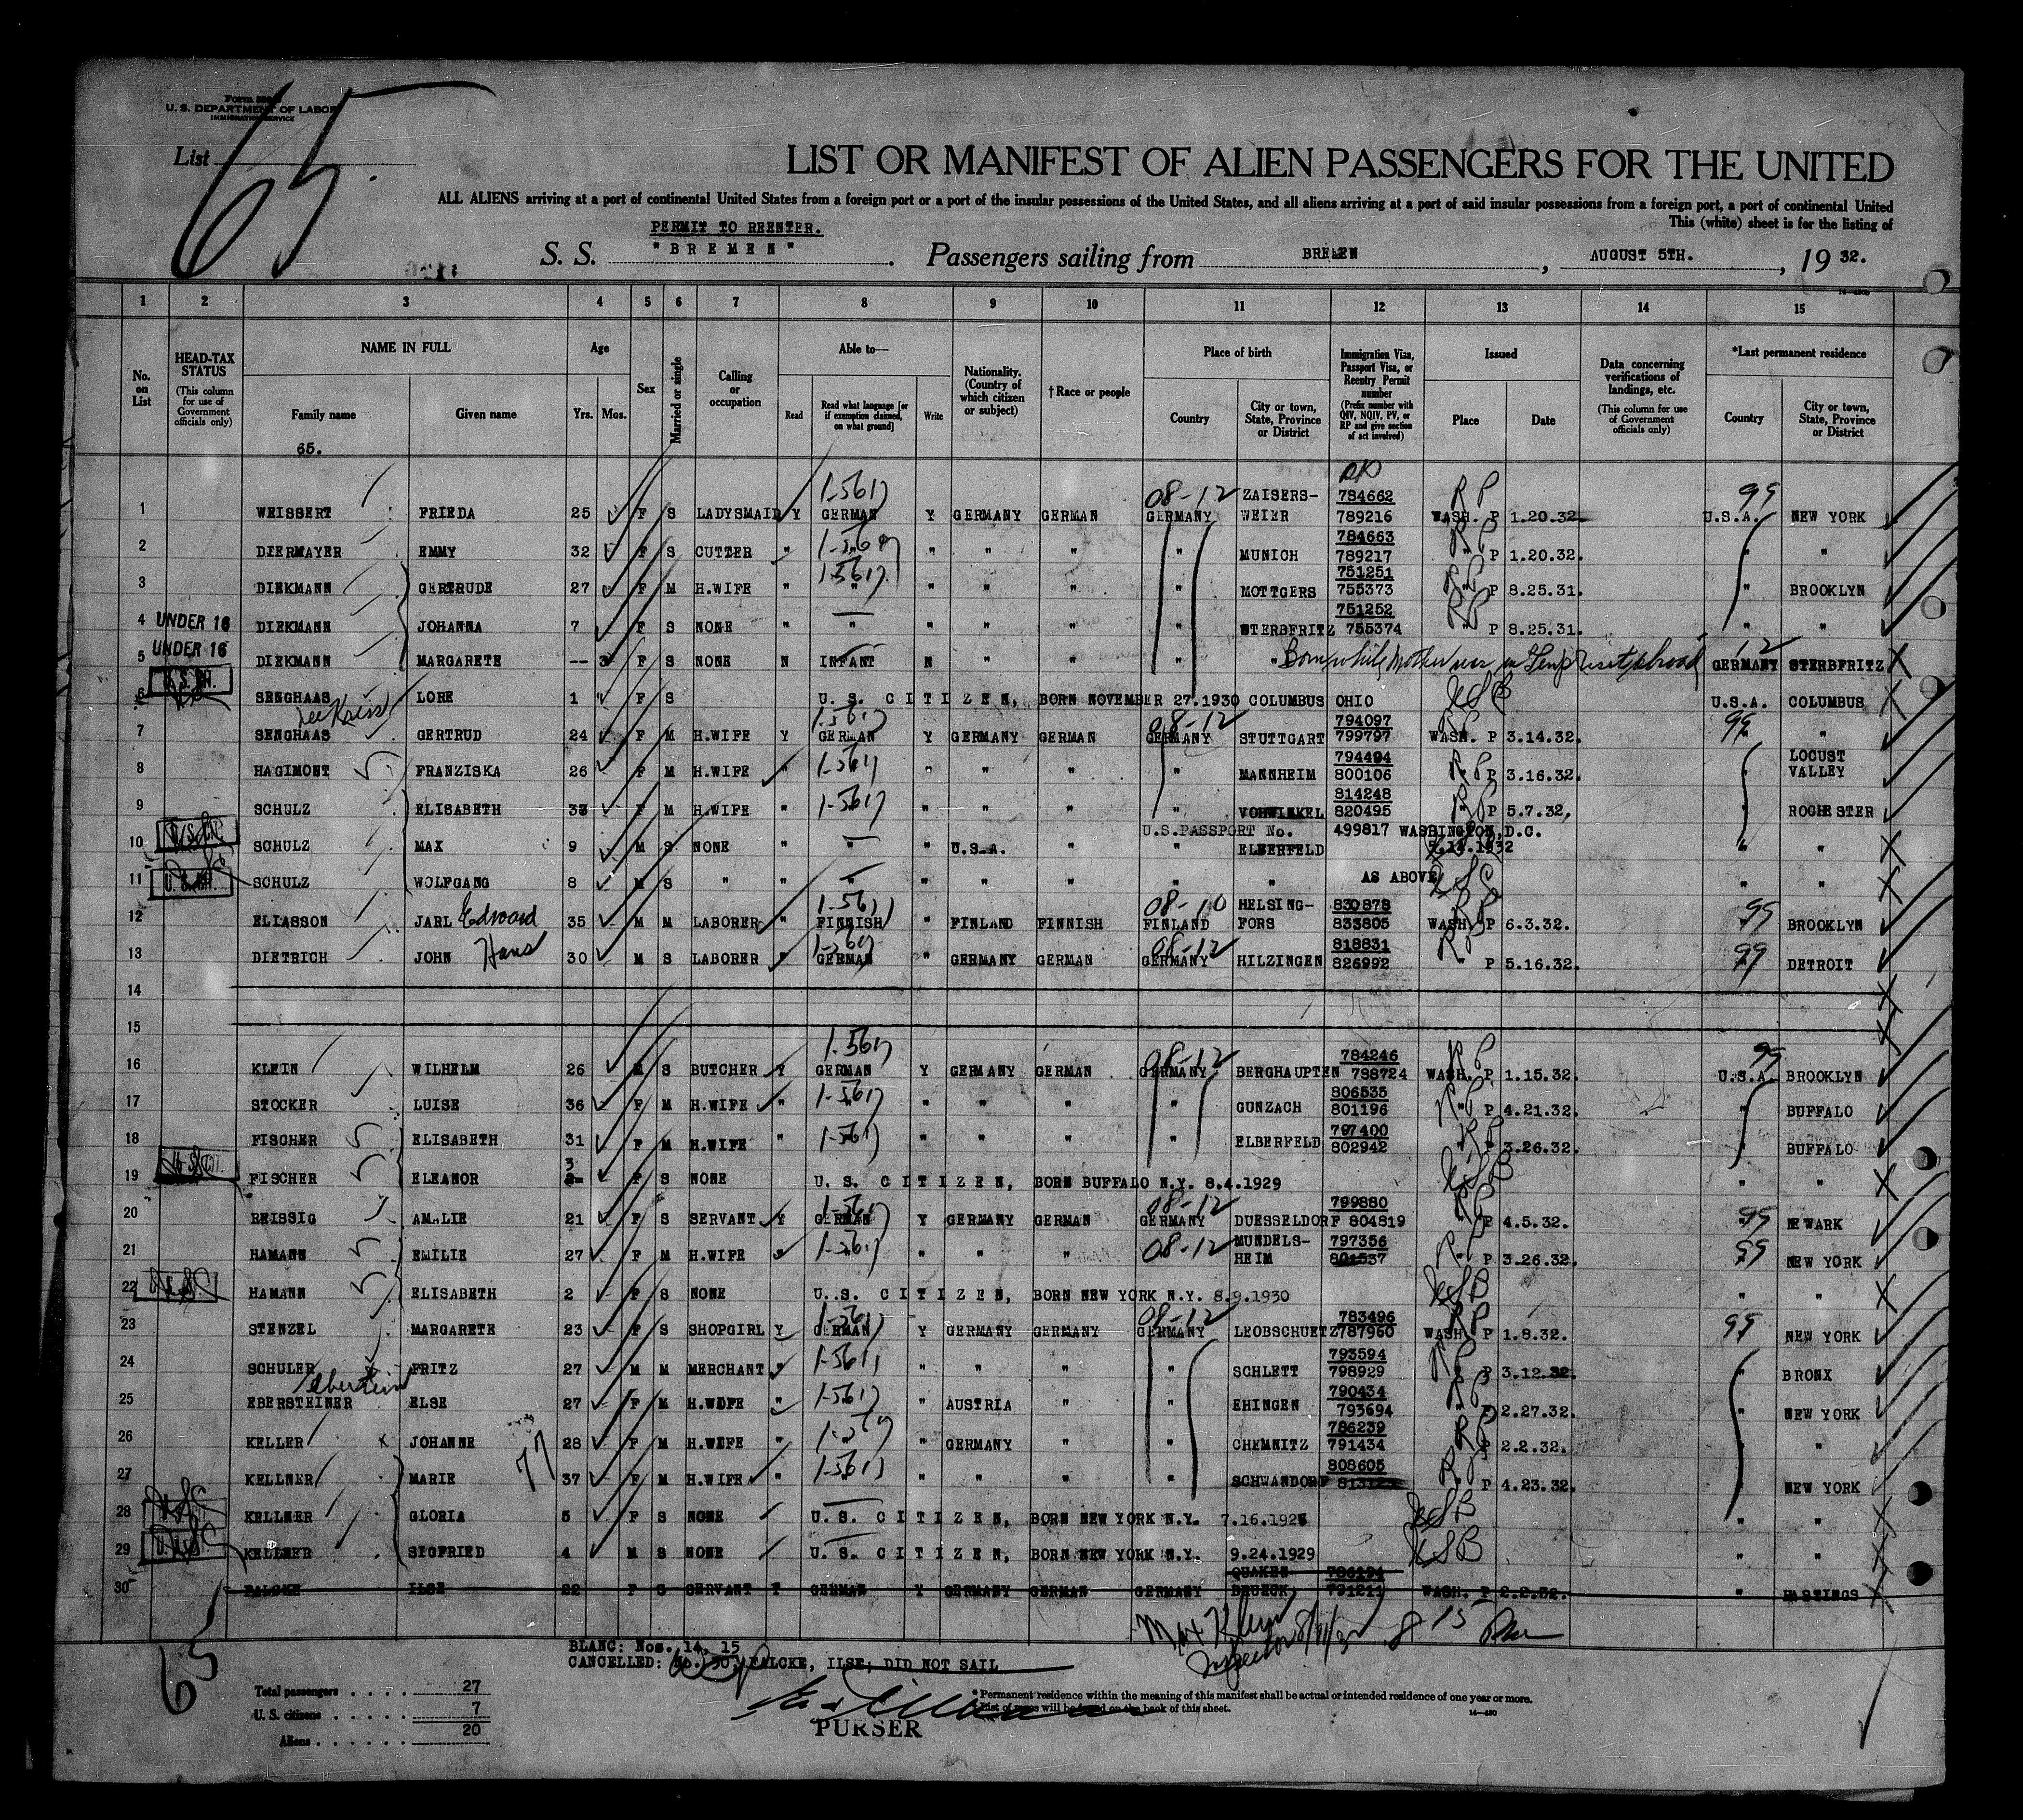 Form
U. S. DEPARTMENT OF LABOR
IMMIGRATION SERVICE
List 65.
LIST OR MANIFEST OF ALIEN PASSENGERS FOR THE UNITED
ALL ALIENS arriving at a port of continental United States from a foreign port or a port of the insular possessions of the United States, and all aliens arriving at a port of said insular possessions from a foreign port, a port of continental United
This (white) sheet is for the listing of
PERMIT TO REENTER.
S. S. "BREMEN". Passengers sailing from BREMEN, AUGUST 5TH., 19 32.
1 2 3 4 5 6 7 8 9 10 11 12 13 14 15
No. on List
HEAD-TAX STATUS (This column for use of Government officials only)
NAME IN FULL Family name Given name
65.
Age Yrs. Mos.
Sex
Married or single
Calling or occupation
Able to— Read Read what language [or if exemption claimed, on what ground] Write
Nationality. (Country of which citizen or subject)
†Race or people
Place of birth Country City or town, State, Province or District
Immigration Visa, Passport Visa, or Reentry Permit number (Prefix number with QIV, NQIV, PV, or RP and give section of act involved)
Issued Place Date
Data concerning verifications of landings, etc. (This column for use of Government officials only)
*Last permanent residence Country City or town, State, Province or District
1 WEISSERT FRIEDA 25 F S LADYSMAID Y GERMAN Y GERMANY GERMAN 08-12 GERMANY ZAISERS-WEIER 784662 789216 RP WASH. P 1.20.32. 99 U.S.A. NEW YORK
2 DIERMAYER EMMY 32 F S CUTTER " " " " " " MUNICH 784663 789217 RP " P 1.20.32. " "
3 DIEKMANN GERTRUDE 27 F M H.WIFE " " " " " " MOTTGERS 751251 755373 RP " P 8.25.31. " BROOKLYN
4 UNDER 16 DIEKMANN JOHANNA 7 F S NONE " " " " " " STERBFRITZ 751252 755374 RP " P 8.25.31. " "
5 UNDER 16 DIEKMANN MARGARETE -- 3 F S NONE N INFANT N " " " " Born while Mother was on Temp visit abroad 12 GERMANY STERBFRITZ
6 SENGHAAS LORE 1 F S U. S. CITIZEN, BORN NOVEMBER 27.1930 COLUMBUS OHIO U.S.A. COLUMBUS
7 SENGHAAS GERTRUD 24 F M H.WIFE Y GERMAN Y GERMANY GERMAN 08-12 GERMANY STUTTGART 794097 799797 RP WASH. P 3.14.32. 99 " "
8 HAGIMONT FRANZISKA 26 F M H.WIFE " " " " " MANNHEIM 794494 800106 RP P 3.16.32. LOCUST VALLEY
9 SCHULZ ELISABETH 33 F M H.WIFE " " " " " VOHWINKEL 814248 820495 RP P 5.7.32. " ROCHESTER
10 SCHULZ MAX 9 M S NONE " " " U.S.A. " " ELBERFELD U.S.PASSPORT No. 499817 WASHINGTON, D.C. 5.14.1932 " "
11 SCHULZ WOLFGANG 8 M S " " " " " " " " AS ABOVE " "
12 ELIASSON JARL Edward 35 M M LABORER " FINNISH " FINLAND FINNISH 08-10 FINLAND HELSING-FORS 830878 833805 RP WASH. P 6.3.32. 99 BROOKLYN
13 DIETRICH JOHN Hans 30 M S LABORER " GERMAN " GERMANY GERMAN 08-12 GERMANY HILZINGEN 818831 826992 RP " P 5.16.32. 99 DETROIT
14
15
16 KLEIN WILHELM 26 M S BUTCHER Y GERMAN Y GERMANY GERMAN 08-12 GERMANY BERGHAUPTEN 784246 788724 RP WASH. P 1.15.32. 99 U.S.A. BROOKLYN
17 STOCKER LUISE 36 F M H.WIFE " " " " " " GUNZACH 806535 801196 RP " P 4.21.32. " BUFFALO
18 FISCHER ELISABETH 31 F M H.WIFE " " " " " ELBERFELD 797400 802942 RP " P 3.26.32. " BUFFALO
19 FISCHER ELEANOR 3 F S NONE U. S. CITIZEN, BORN BUFFALO N.Y. 8.4.1929 " "
20 REISSIG AMALIE 21 F S SERVANT Y GERMAN Y GERMANY GERMAN 08-12 GERMANY DUESSELDORF 799880 804819 RP " P 4.5.32. 99 NEWARK
21 HAMANN EMILIE 27 F M H.WIFE " " " " 08-12 MUNDELS-HEIM 797356 801537 RP " P 3.26.32. 99 NEW YORK
22 HAMANN ELISABETH 2 F S NONE U. S. CITIZEN, BORN NEW YORK N.Y. 8.9.1930 " "
23 STENZEL MARGARETE 23 F S SHOPGIRL Y GERMAN Y GERMANY GERMANY 08-12 GERMANY LEOBSCHUETZ 783496 787960 RP WASH. P 1.8.32. 99 NEW YORK
24 SCHULER FRITZ 27 M M MERCHANT " " " " " SCHLETT 793594 798929 RP P 3.12.32. " BRONX
25 EBERSTEINER Eberstein ELSE 27 F M H.WIFE " " AUSTRIA " " EHINGEN 790434 793694 RP " P 2.27.32. " NEW YORK
26 KELLER JOHANNE 28 F M H.WIFE " " " GERMANY " " CHEMNITZ 786239 791434 RP P 2.2.32. " "
27 KELLNER MARIE 37 F M H.WIFE " " " " " SCHWANDORF 808605 RP P 4.23.32. NEW YORK
28 KELLNER GLORIA 5 F S NONE U. S. CITIZEN, BORN NEW YORK N.Y. 7.16.192 " "
29 KELLNER SIGFRIED 4 M S NONE U. S. CITIZEN, BORN NEW YORK N.Y. 9.24.1929 " "
30 FALCKE ILSE 22 F S SERVANT Y GERMAN Y GERMANY GERMAN GERMANY QUAKEN-BRUECK 786194 791211 WASH. P 2.2.32. " HASTINGS
Max Klein
Inspector
65
BLANC: Nos. 14, 15
CANCELLED: No. 30, FALCKE, ILSE; DID NOT SAIL
Total passengers . . . . 27
U. S. citizens . . . . . 7
Aliens . . . . . . 20
PURSER
* Permanent residence within the meaning of this manifest shall be actual or intended residence of one year or more.
† List of races will be found on the back of this sheet.